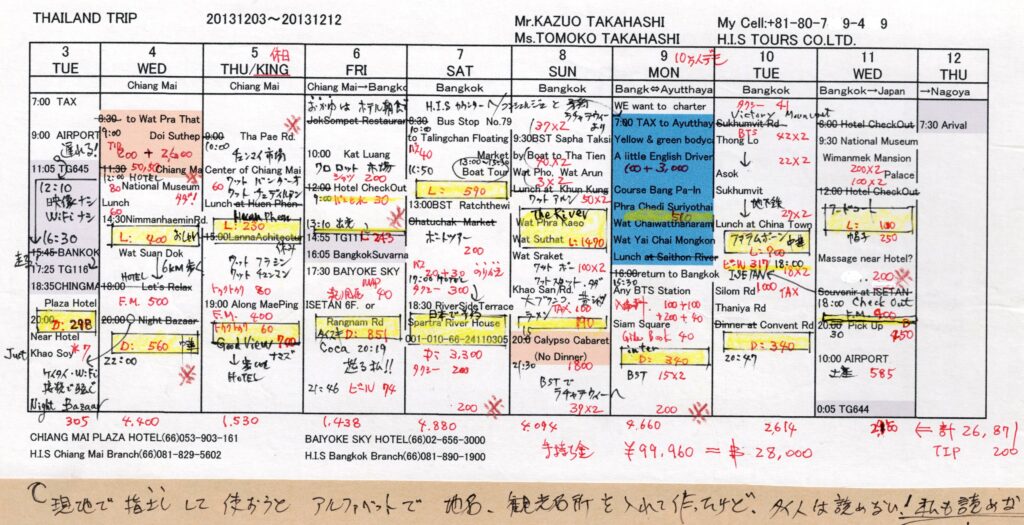 THAILAND TRIP 20131203～20131212
Mr.KAZUO TAKAHASHI
Ms.TOMOKO TAKAHASHI
My Cell:+81-80-7 9-4 9
H.I.S TOURS CO.LTD.
3
TUE
7:00 TAX
9:00 AIRPORT
遅れる!
11:05 TG645
12:10
映像ナシ
WiFiナシ
16:30
15:45 BANKOK
17:25 TG116
18:35CHINGMA
Plaza Hotel
20:00
D: 298
Near Hotel
Khao Soy
Just
ケイタイ・WiFi
Night Bazaar
305
4
WED
Chiang Mai
8:30 to Wat Pra That
9:00 Doi Suthep
TIP
11:30 Chiang Ma
12:00 HOTEL
National Museum
80
Lunch
60
14:30NimmanhaeminRd
L: 400
Wat Suan Dok
HOTEL 6km歩く
18:00 Let's Relax
F.M. 500
20:00 Night Bazaar
D: 560
22:00
4,400
5 休日
THU/KING
Chiang Mai
9:00 Tha Pae Rd.
10:00
チェンマイ市場
Center of Chiang Mai
60
Lunch at Huen Phen
Huen Phen
L: 230
15:00LannaAchitectu
ワット チェンマン
トゥクトゥク 80
19:00 Along MaePing
F.M. 400
トゥクトゥク 60
Good View 700
HOTEL
1,530
6
FRI
Chiang Mai→Bangko
おかゆは ホテル朝食
JokSompet Restaurar
10:00 Kat Luang
ワロロット市場
200
12:00 Hotel CheckOut
30
13:10
14:55 TG111
L: 243
16:10 BangkokSuvarna
17:30 BAIYOKE SKY
40
ISETAN 6F. or
Rangnam Rd
D: 851
Coca 20:19
21:46 ビール 74
1,438
7
SAT
Bangkok
H.I.S カウンターへ
8:30 Bus Stop No.79
10:00
to Talingchan Floating
40
Market
10:50
13:00~15:30
Boat Tour
L: 590
13:00BST Ratchthewi
Chatuchak Market
ボートツアー
200
20+30
17:00 HOTEL
タクシー 300
18:30 RiverSideTerrace
Spartra River House
001-010-66-24110305
D: 3,300
タクシー 200
200
4,880
8
SUN
Bangkok
137×2
9:30BST Sapha Taksi
by Boat to Tha Tien
Wat Pho, Wat Arun
3×2
Lunch at Khun Kung
50×2
The River
Wat Phra Kaeo
Wat Suthat
L: 1490
Wat Sraket
ワット ポー 100×2
Khao San Rd.
ラーメン
TAX 100
20:00 Calypso Cabaret
(No Dinner)
21:30 1800
BSTで
39×2
4,094
9 10万人デモ
MON
Bangk⇔Ayutthaya
WE want to charter
7:00 TAXI to Ayutthay
Yellow & green bodyc
A little English Driver
Course Bang Pa-In
Phra Chedi Suriyothai
510
Wat Chaiwatthanaram
Wat Yai Chai Mongkon
Lunch at Saithon River
16:00return to Bangkok
15:30
Any BTS Station
100+100
+200+40
Siam Square
Guide Book 40
inter
D: 340
BST 15×2
200
4,660
10
TUE
Bangkok
タクシー 41
Victory Monument
Sukhumvit Rd
BTS 42×2
Thong Lo
22×2
Asok
Sukhumvit
地下鉄
29×2
Lunch at China Town
L: 900
ビール 317 18:00
ISETANE 10×2
Silom Rd TAX
100
Thaniya Rd
Dinner at Convent Rd
D: 340
20:47
2,614
11
WED
Bangkok→Japan
8:00 Hotel CheckOut
9:30 National Museum
Wimanmek Mansion
200×2 Palace
100×2
12:00 Hotel CheckOut
フードコート
L: 100
帽子 250
Massage near Hotel?
200
Souvenir at ISETAN
18:00 Check Out
F.M. 400
20:00 Pick Up
450
10:00 AIRPORT
土産 585
0:05 TG644
12
THU
→Nagoya
7:30 Arival
← 計 26,871
TIP 200
CHIANG MAI PLAZA HOTEL(66)053-903-161
H.I.S Chiang Mai Branch(66)081-829-5602
BAIYOKE SKY HOTEL(66)02-656-3000
H.I.S Bangkok Branch(66)081-890-1900
手持ち金 ¥99,960 = ฿ 28,000
現地で指差しして使おうと アルファベットで 地名、観光名所を入れて作ったけど、タイ人は読めない!私も読めな